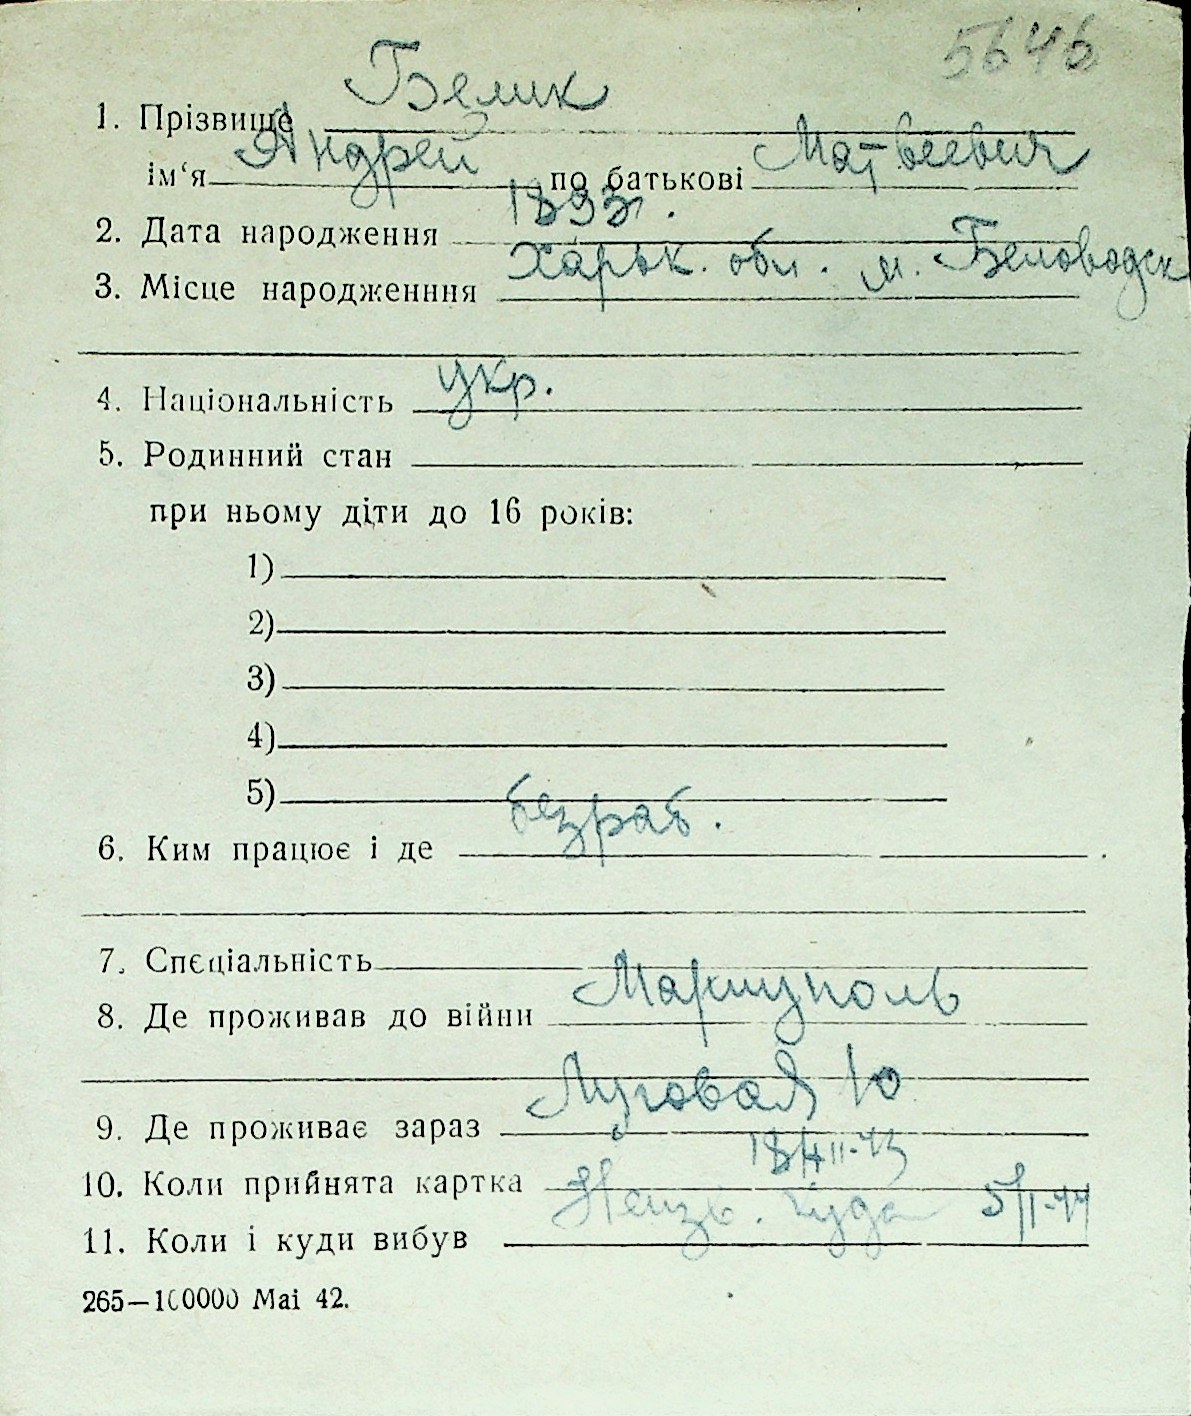 5646
1. Прізвище Белик
ім‘я Андрей по батькові Матвеевич
2. Дата народження 1893г.
3. Місце народженння Харьк. обл. м. Беловодск
4. Національність укр.
5. Родинний стан
при ньому діти до 16 років:
1)
2)
3)
4)
5)
6. Ким працює і де безраб.
7. Спєціальність
8. Де проживав до війни Мариуполь
9. Де проживає зараз Луговая 10
10. Коли прийнята картка
11. Коли і куди вибув Неизв. куда 5/II-44
265—100000 Маі 42.